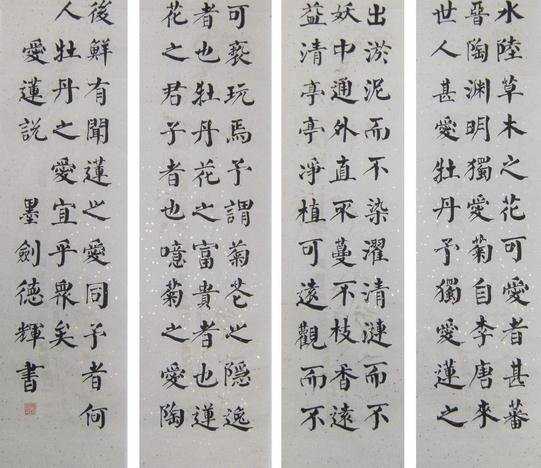 水陸草木之花可愛者甚蕃
晉陶渊明獨愛菊自李唐來
世人甚愛牡丹予獨愛蓮之
出淤泥而不染濯清漣而不
妖中通外直不蔓不枝香遠
益清亭亭淨植可遠觀而不
可褻玩焉予謂菊花之隱逸
者也牡丹花之富貴者也蓮
花之君子者也噫菊之愛陶
後鮮有聞蓮之愛同予者何
人牡丹之愛宜乎衆矣
愛蓮説 墨劍德輝書